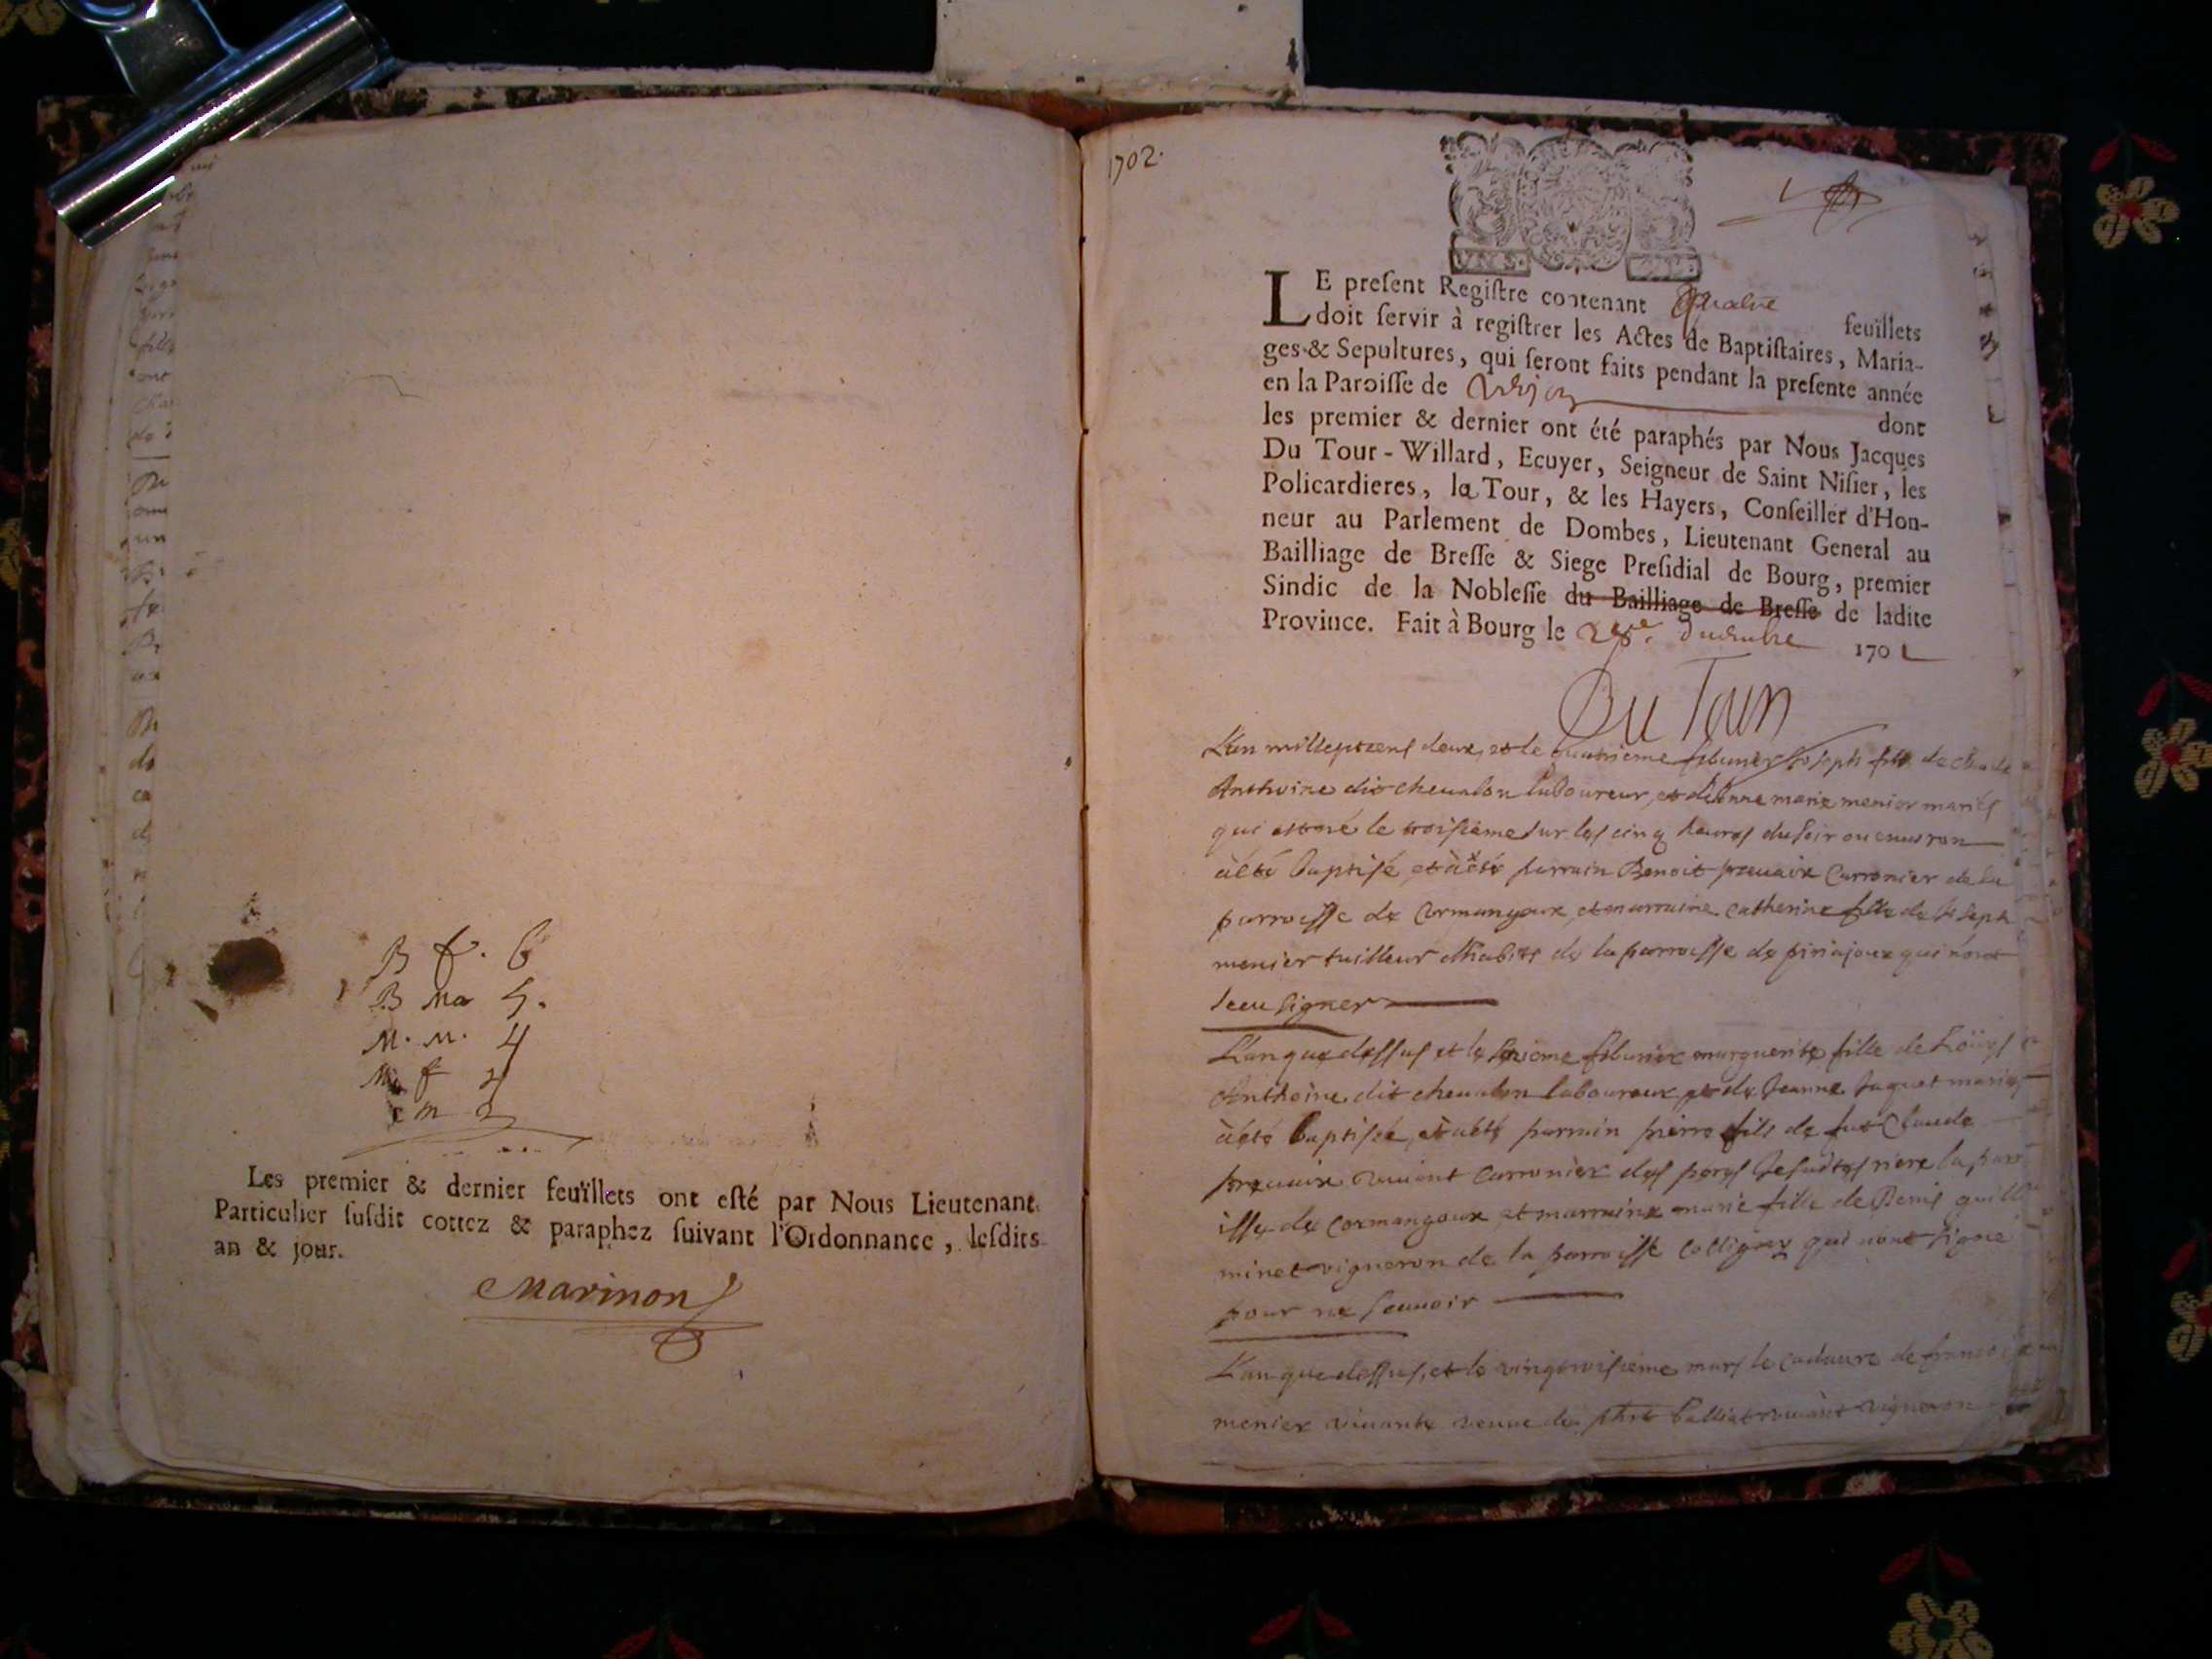 B f. 6
B Ma 5.
M. M. 4
Ma f 2
e m 2
Les premier & dernier feuïllets ont esté par Nous Lieutenant
Particulier susdit cottez & paraphez suivant l'Ordonnance, lesdits
an & jour.
Marinon
1702.
LE present Registre contenant quatre feuïllets
doit servir à registrer les Actes de Baptistaires, Maria-
ges & Sepultures, qui seront faits pendant la presente année
en la Paroisse de dont
les premier & dernier ont été paraphés par Nous Jacques
Du Tour-Willard, Ecuyer, Seigneur de Saint Nisier, les
Policardieres, la Tour, & les Hayers, Conseiller d'Hon-
neur au Parlement de Dombes, Lieutenant General au
Bailliage de Bresse & Siege Presidial de Bourg, premier
Sindic de la Noblesse du Bailliage de Bresse de ladite
Province. Fait à Bourg le 28e. decembre 170
Du Tour
L'an mil sept cens deux, et le quatrieme feburier Joseph fils de claude
Anthoine dit chevalon laboureur, et d'Anne marie menier mariés
qui est né le troisieme sur les cinq heures du soir ou environ
à été baptisé, et à été parrain Benoit carronier de la
parroisse de Cormangoux, et marraine catherine fille de Joseph
menier tailleur d'habits de la parroisse de piriajoux qui n'ont
sceu signer
L'an que dessus et le feburier marguerite fille de Loüys
Anthoine dit chevalon laboureur, et de Jeanne Jaquet mariés
à été baptisée, et à été parrain pierre fils de fut Claude
vivant carronier des peres Jesuites riere la parr
isse de cormangoux et marraine marie fille de Denis guille
minet vigneron de la parroisse Colligny qui n'ont signé
pour ne scauoir
L'an que dessus, et le vingtroisieme mars le cadaure de
menier vivante veuue de balliat vivant vigneron